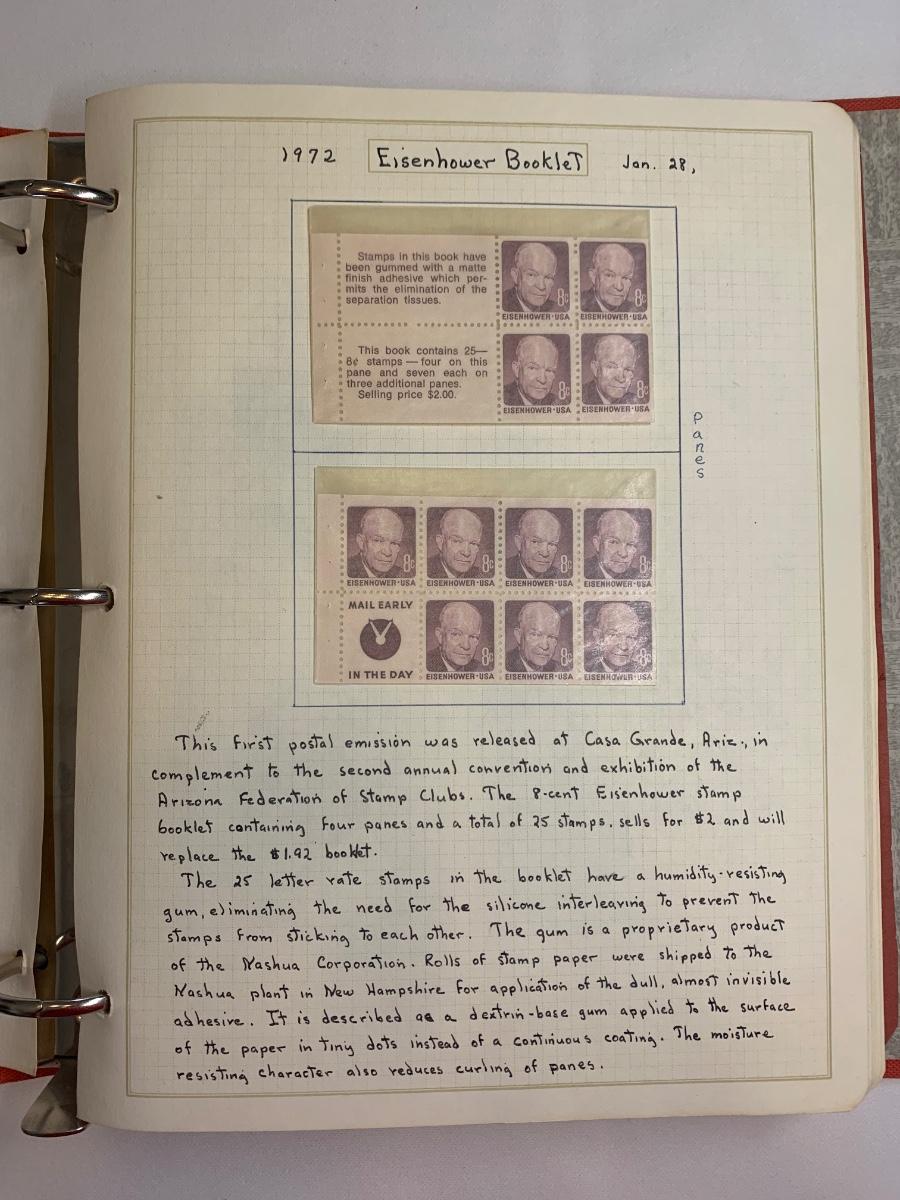 1972 Eisenhower Booklet Jan. 28,
Stamps in this book have
been gummed with a matte
finish adhesive which per-
mits the elimination of the
separation tissues.
8¢ 8¢
EISENHOWER·USA EISENHOWER·USA
This book contains 25—
8¢ stamps — four on this
pane and seven each on
three additional panes.
Selling price $2.00.
8¢ 8¢
EISENHOWER·USA EISENHOWER·USA
Panes
8¢ 8¢ 8¢ 8¢
EISENHOWER·USA EISENHOWER·USA EISENHOWER·USA EISENHOWER·USA
MAIL EARLY
IN THE DAY
8¢ 8¢ 8¢
EISENHOWER·USA EISENHOWER·USA EISENHOWER·USA
This first postal emission was released at Casa Grande, Ariz., in
complement to the second annual convention and exhibition of the
Arizona Federation of Stamp Clubs. The 8-cent Eisenhower stamp
booklet containing four panes and a total of 25 stamps, sells for $2 and will
replace the $1.92 booklet.
The 25 letter rate stamps in the booklet have a humidity-resisting
gum, eliminating the need for the silicone interleaving to prevent the
stamps from sticking to each other. The gum is a proprietary product
of the Nashua Corporation. Rolls of stamp paper were shipped to the
Nashua plant in New Hampshire for application of the dull, almost invisible
adhesive. It is described as a dextrin-base gum applied to the surface
of the paper in tiny dots instead of a continuous coating. The moisture
resisting character also reduces curling of panes.